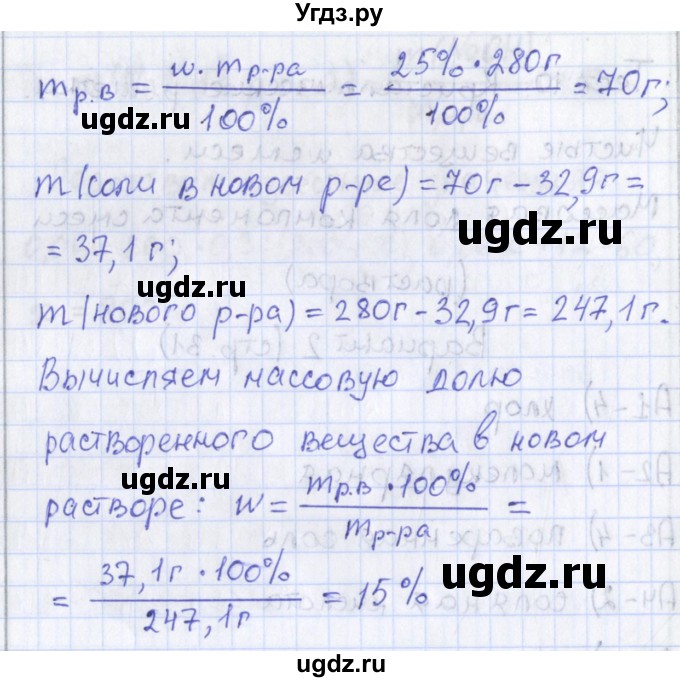 Угдз.ру
m р.в = w · m р-ра / 100% = 25% · 280г / 100% = 70г;
ugdz.ru
ugdz.ru
m (соли в новом р-ре) = 70г - 32,9г =
= 37,1 г;
ugdz.ru
ugdz.ru
m (нового р-ра) = 280г - 32,9г = 247,1 г.
Вычисляем массовую долю
растворенного вещества в новом
ugdz.ru
растворе: w = m р.в · 100% / m р-ра =
= 37,1 г · 100% / 247,1 г = 15%
ugdz.ru
ugdz.ru